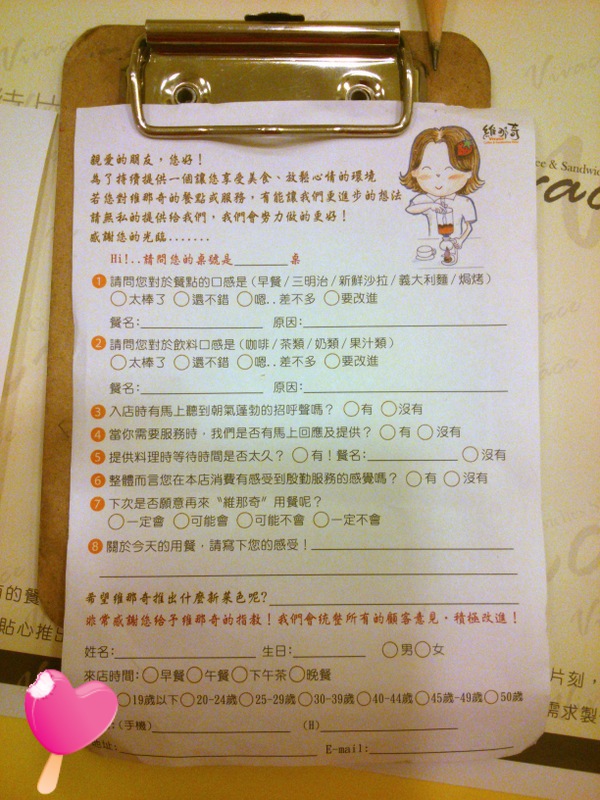 維那奇
親愛的朋友，您好！
為了持續提供一個讓您享受美食、放鬆心情的環境
若您對維那奇的餐點或服務，有能讓我們更進步的想法
請無私的提供給我們，我們會努力做的更好！
感謝您的光臨.......
Hi!..請問您的桌號是________桌
1 請問您對於餐點的口感是(早餐/三明治/新鮮沙拉/義大利麵/焗烤)
○太棒了 ○還不錯 ○嗯..差不多 ○要改進
餐名:________ 原因:________
2 請問您對於飲料口感是(咖啡/茶類/奶類/果汁類)
○太棒了 ○還不錯 ○嗯..差不多 ○要改進
餐名:________ 原因:________
3 入店時有馬上聽到朝氣蓬勃的招呼聲嗎？ ○有 ○沒有
4 當你需要服務時，我們是否有馬上回應及提供？ ○有 ○沒有
5 提供料理時等待時間是否太久？ ○有！餐名:________ ○沒有
6 整體而言您在本店消費有感受到殷勤服務的感覺嗎？ ○有 ○沒有
7 下次是否願意再來〝維那奇〞用餐呢？
○一定會 ○可能會 ○可能不會 ○一定不會
8 關於今天的用餐，請寫下您的感受！________
希望維那奇推出什麼新菜色呢?________
非常感謝您給予維那奇的指教！我們會統整所有的顧客意見，積極改進！
姓名:________ 生日:________ ○男○女
來店時間:○早餐○午餐○下午茶○晚餐
○19歲以下○20-24歲○25-29歲○30-39歲○40-44歲○45歲-49歲○50歲
:(手機)________ (H)________
地址:________ E-mail:________
Vivace
ce & Sandwic
有的餐
貼心推出
片刻，
需求製